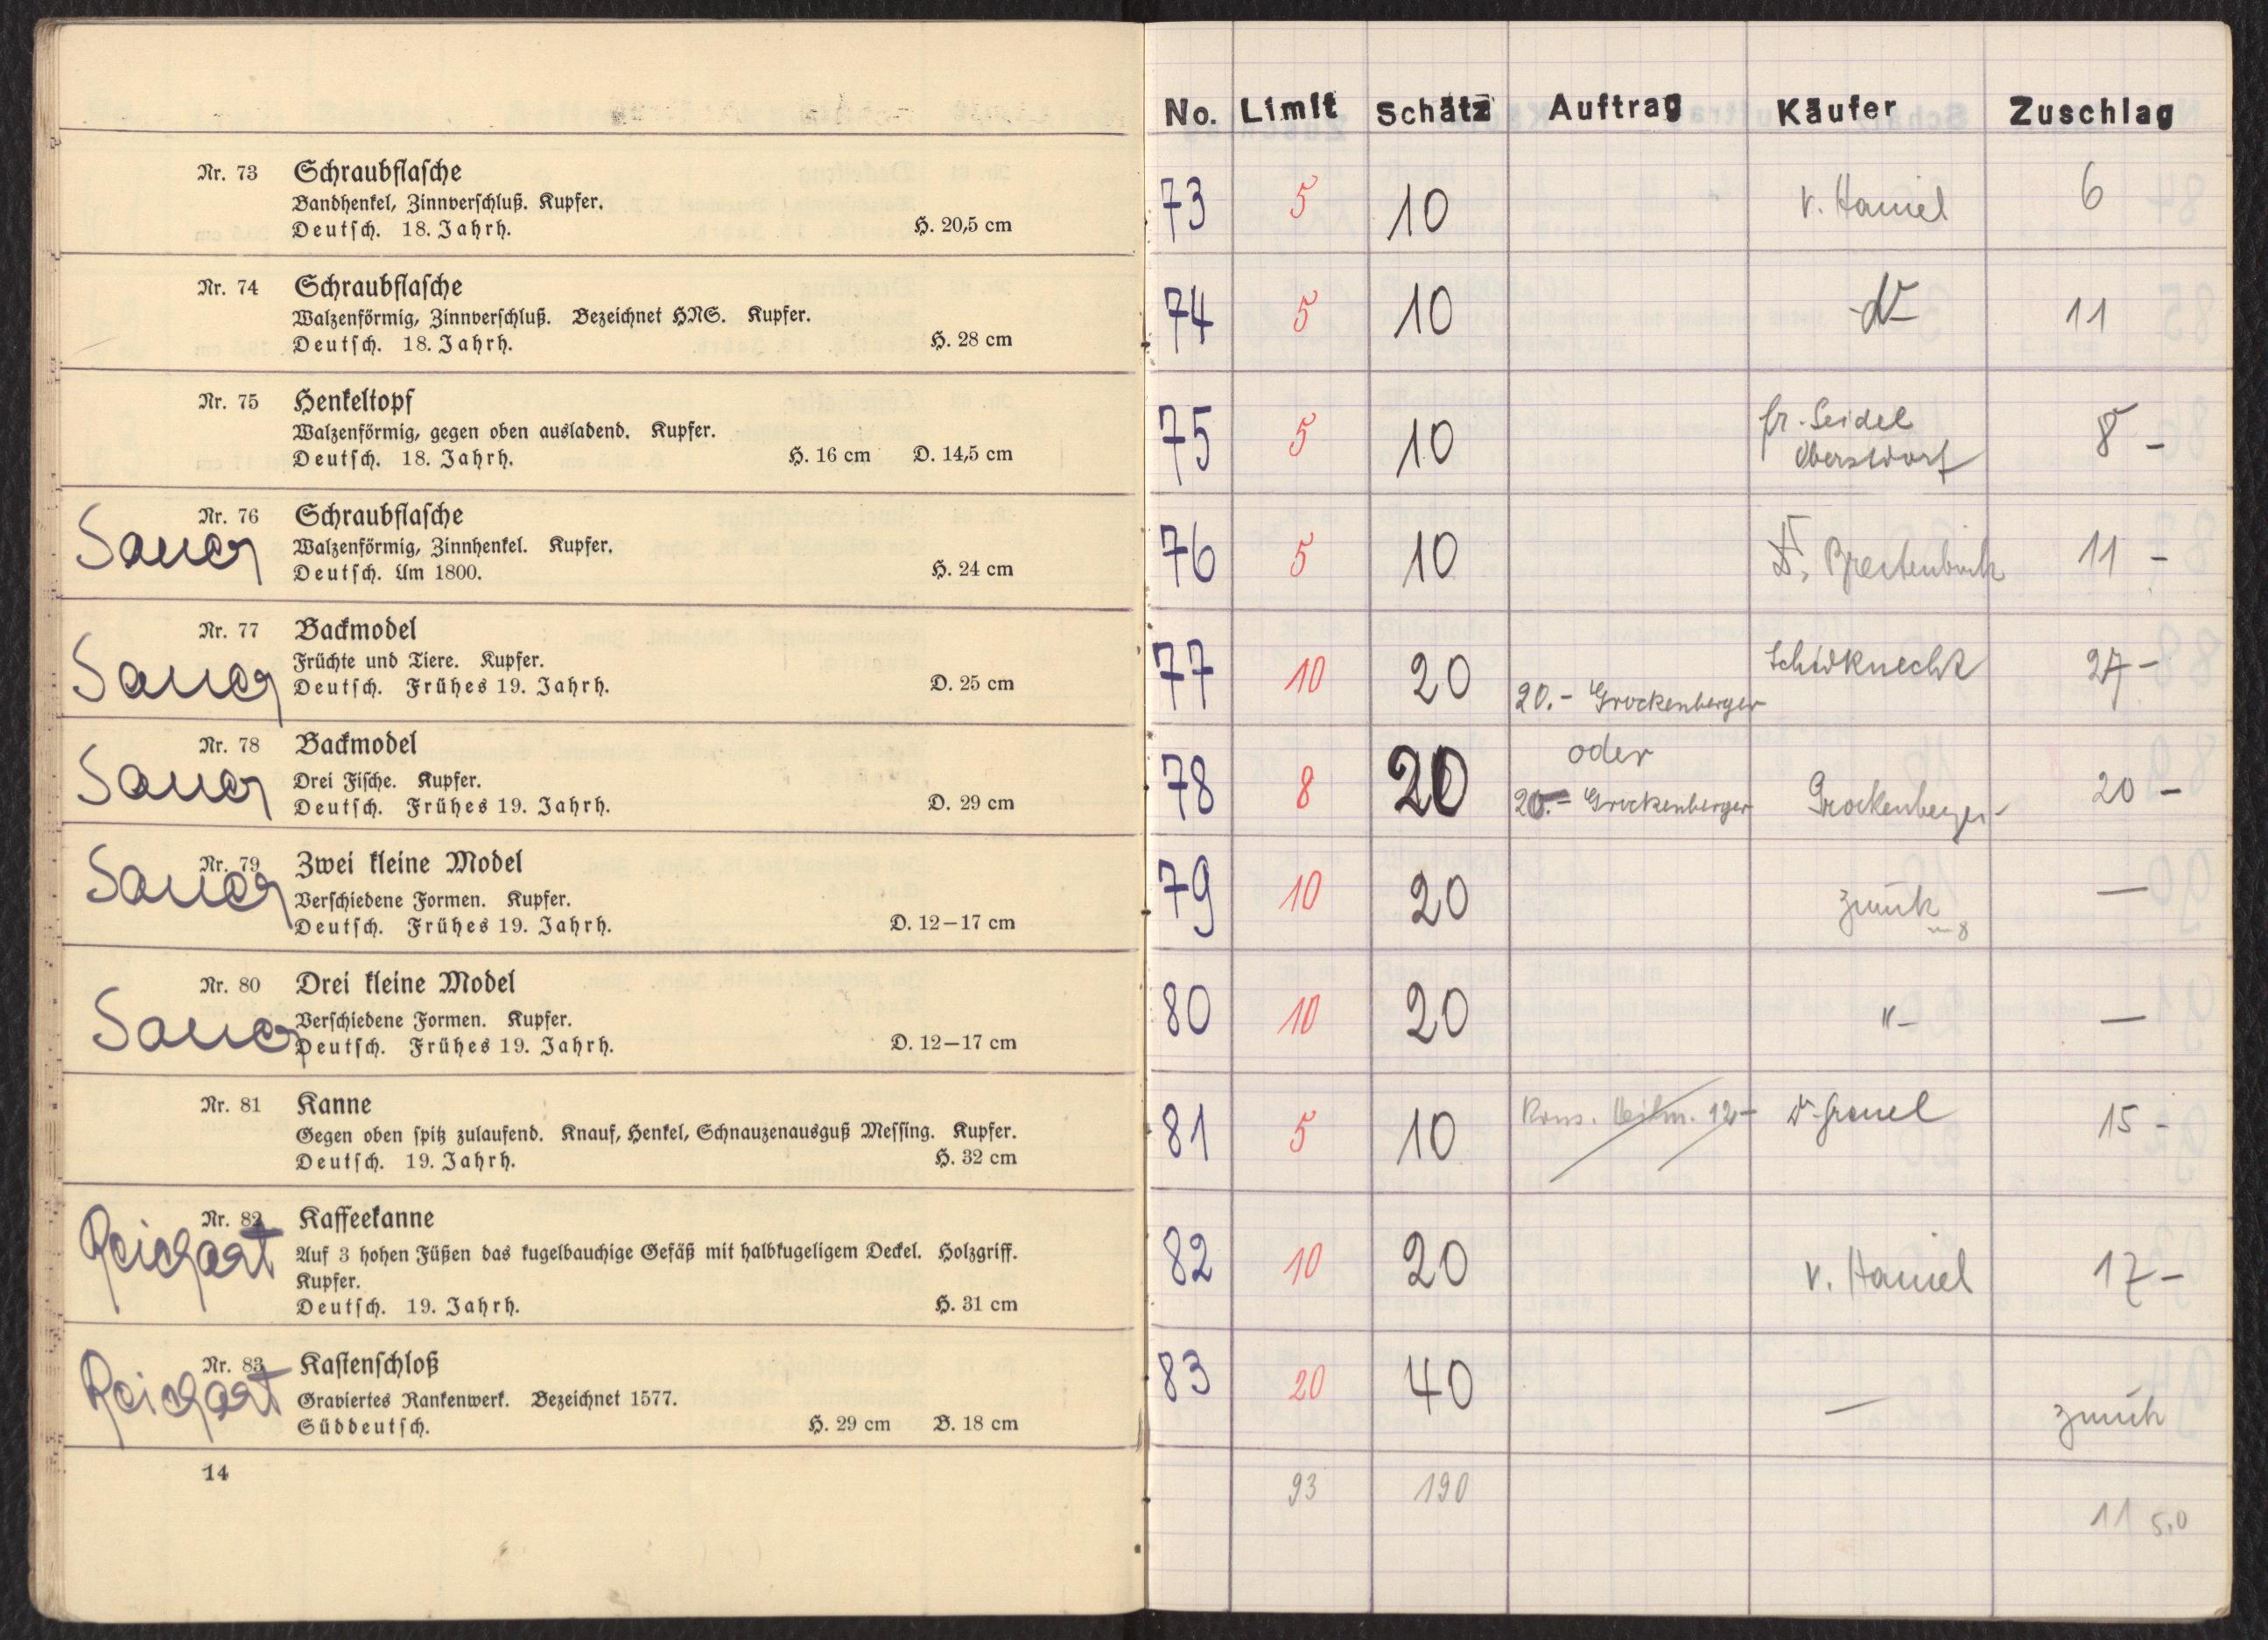 Nr. 73 Schraubflasche
Bandhenkel, Zinnverschluß. Kupfer.
Deutsch. 18. Jahrh. H. 20,5 cm
Nr. 74 Schraubflasche
Walzenförmig, Zinnverschluß. Bezeichnet HNS. Kupfer.
Deutsch. 18. Jahrh. H. 28 cm
Nr. 75 Henkeltopf
Walzenförmig, gegen oben ausladend. Kupfer.
Deutsch. 18. Jahrh. H. 16 cm D. 14,5 cm
Nr. 76 Schraubflasche
Sauer
Walzenförmig, Zinnhenkel. Kupfer.
Deutsch. Um 1800. H. 24 cm
Nr. 77 Backmodel
Sauer
Früchte und Tiere. Kupfer.
Deutsch. Frühes 19. Jahrh. D. 25 cm
Nr. 78 Backmodel
Sauer
Drei Fische. Kupfer.
Deutsch. Frühes 19. Jahrh. D. 29 cm
Nr. 79 Zwei kleine Model
Sauer
Verschiedene Formen. Kupfer.
Deutsch. Frühes 19. Jahrh. D. 12–17 cm
Nr. 80 Drei kleine Model
Sauer
Verschiedene Formen. Kupfer.
Deutsch. Frühes 19. Jahrh. D. 12–17 cm
Nr. 81 Kanne
Gegen oben spitz zulaufend. Knauf, Henkel, Schnauzenausguß Messing. Kupfer.
Deutsch. 19. Jahrh. H. 32 cm
Nr. 82 Kaffeekanne
Reichart
Auf 3 hohen Füßen das kugelbauchige Gefäß mit halbkugeligem Deckel. Holzgriff.
Kupfer.
Deutsch. 19. Jahrh. H. 31 cm
Nr. 83 Kastenschloß
Reichart
Graviertes Rankenwerk. Bezeichnet 1577.
Süddeutsch. H. 29 cm B. 18 cm
14
No. Limit Schätz Auftrag Käufer Zuschlag
73 5 10 v. Haniel 6
74 5 10 11
75 5 10 fr. Seidel 8 -
Oberstdorf
76 5 10 Dr. Breitenbach 11 -
77 10 20 Schidknecht 27 -
20.- Grockenberger
oder
78 8 20 20.- Grockenberger Grockenberger 20 -
79 10 20 zurück —
80 10 20 "- —
81 5 10 12- 15 -
82 10 20 v. Haniel 17 -
83 20 40 — zurück
93 190
11 5.0